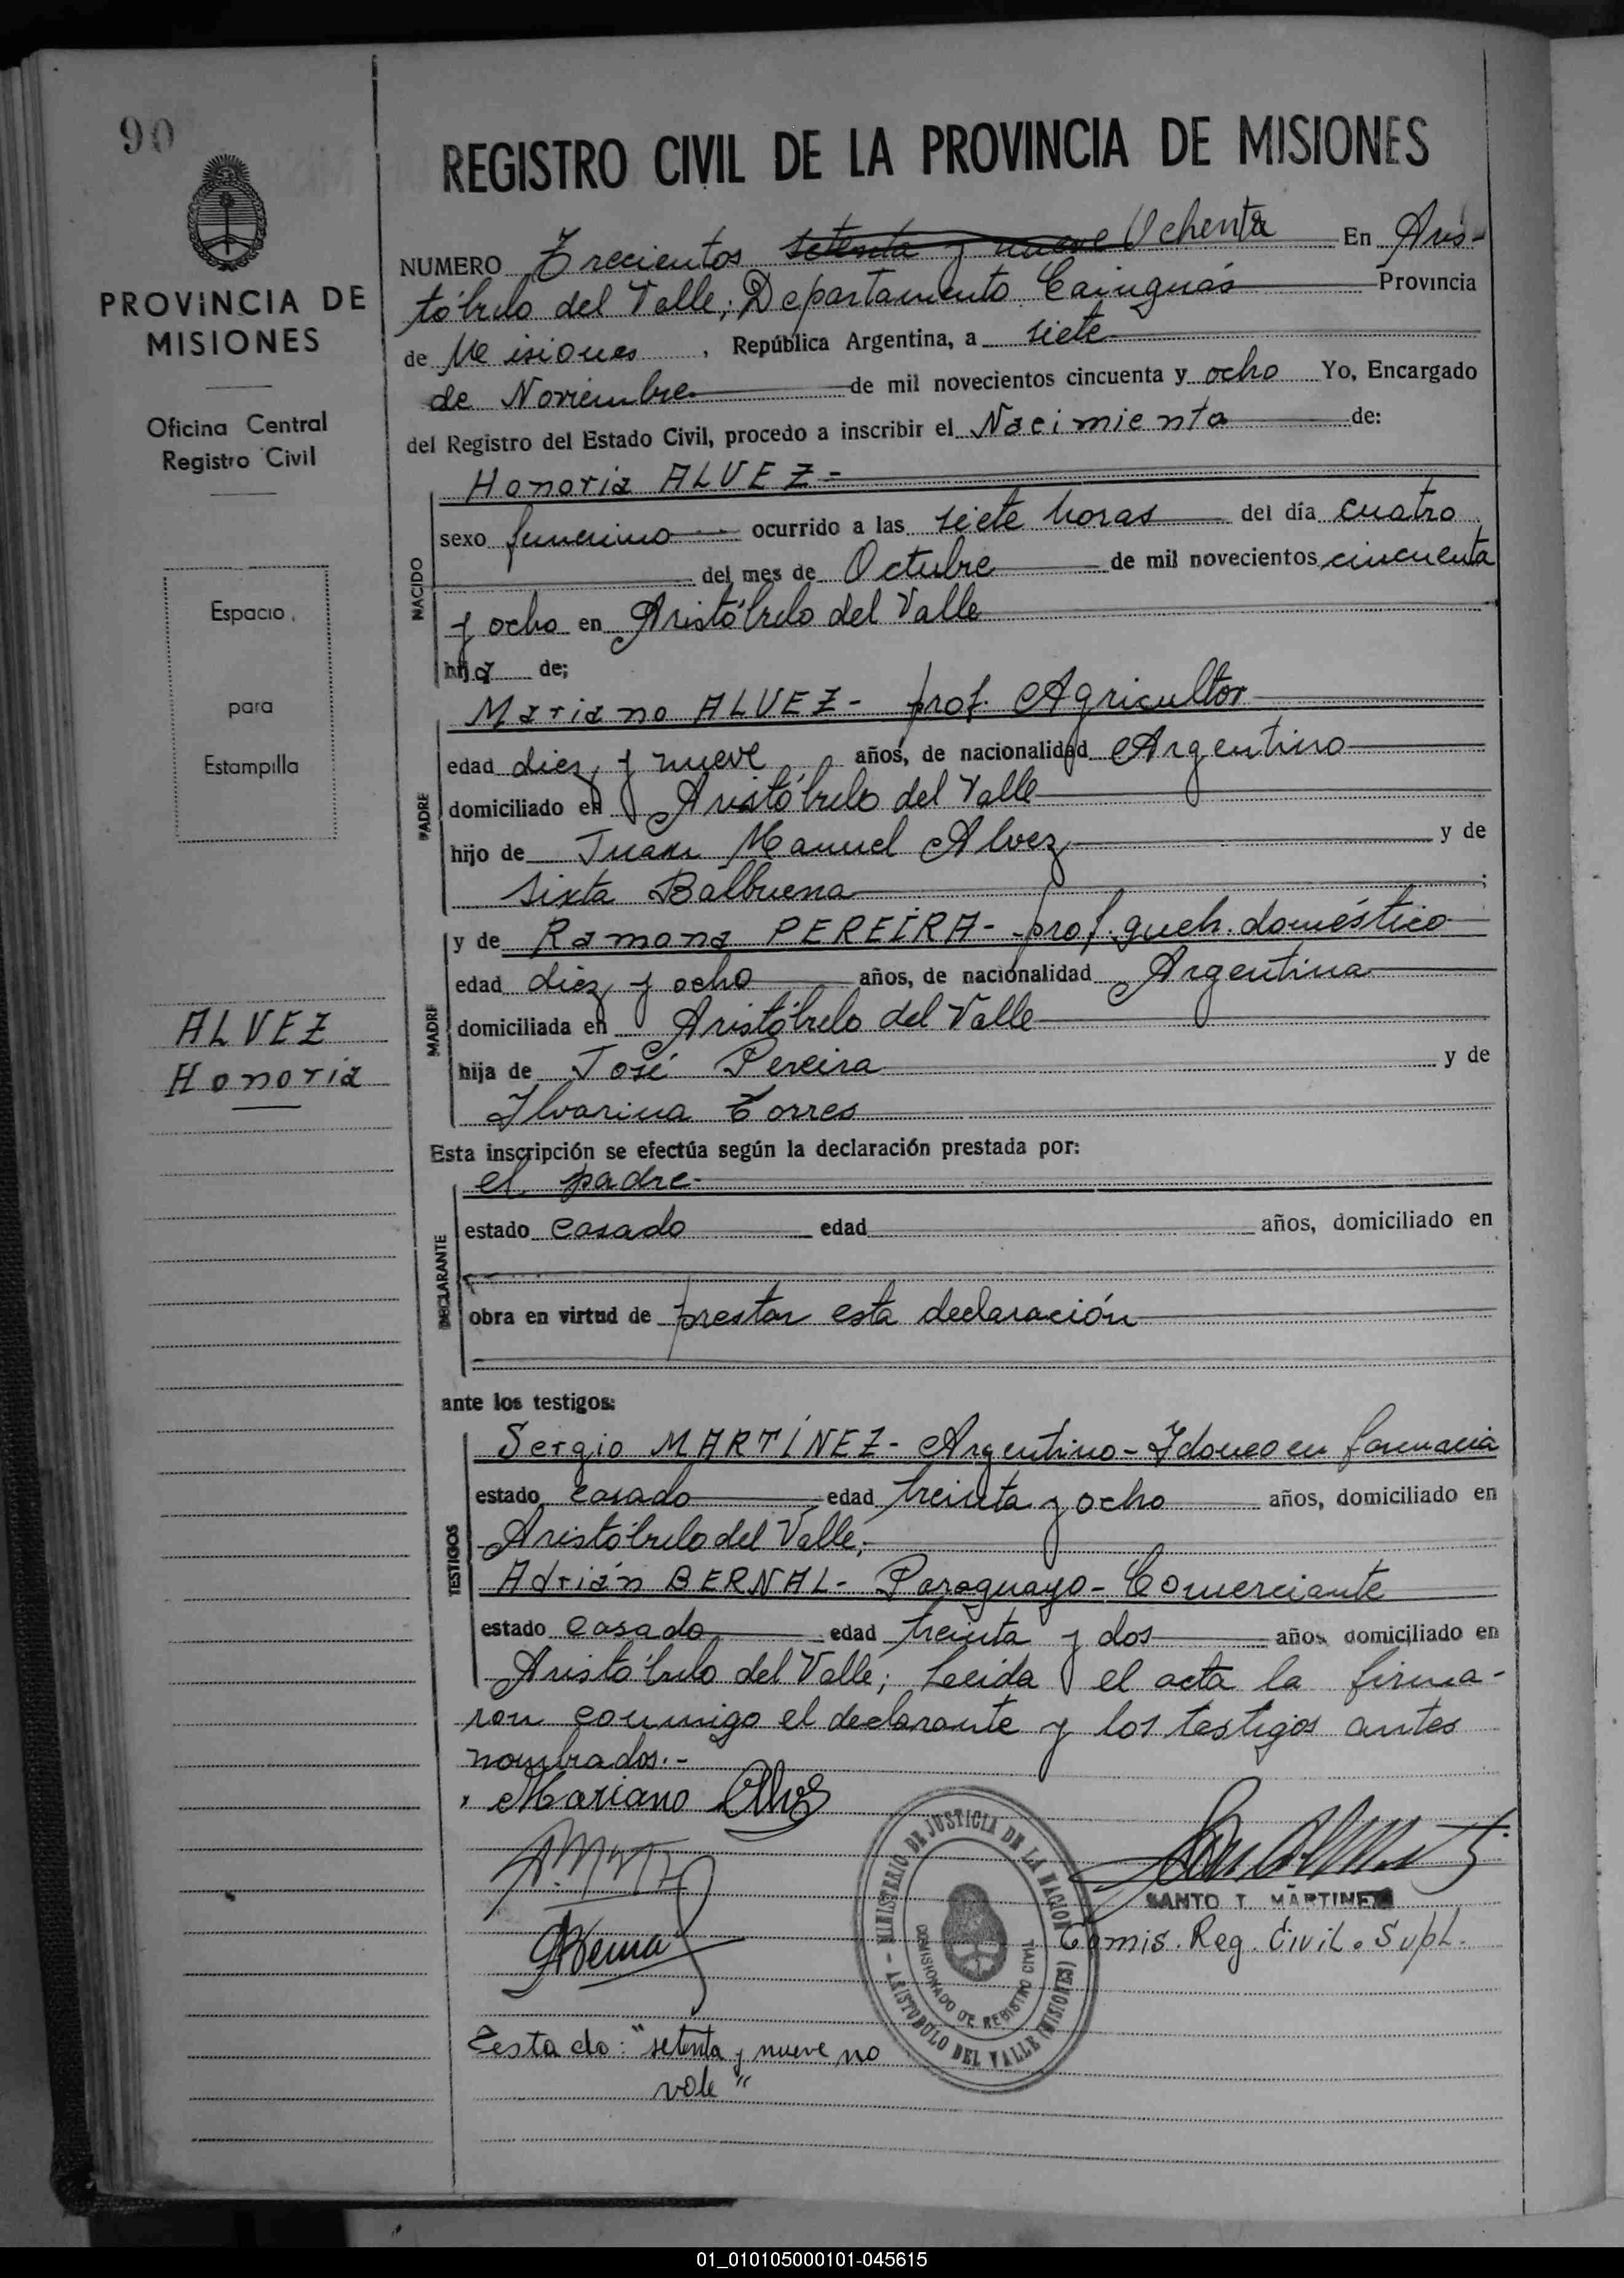 90
PROVINCIA DE
MISIONES
Oficina Central
Registro Civil
Espacio
para
Estampilla
ALVEZ
Honoria
REGISTRO CIVIL DE LA PROVINCIA DE MISIONES
NUMERO Trecientos setenta y nueve Ochenta En Aris-
tóbulo del Valle; Departamento Cainguás Provincia
de Misiones, República Argentina, a siete
de Noviembre de mil novecientos cincuenta y ocho Yo, Encargado
del Registro del Estado Civil, procedo a inscribir el Nacimiento de:
NACIDO
Honoria ALVEZ-
sexo femenino ocurrido a las siete horas del día cuatro
del mes de Octubre de mil novecientos cincuenta
y ocho en Aristóbulo del Valle
hija de;
PADRE
Mariano ALVEZ- prof. Agricultor
edad diez y nueve años, de nacionalidad Argentino
domiciliado en Aristóbulo del Valle
hijo de Juan Manuel Alvez y de
Sixta Balbuena
MADRE
y de Ramona PEREIRA- prof. queh. doméstico
edad diez y ocho años, de nacionalidad Argentina
domiciliada en Aristóbulo del Valle
hija de José Pereira y de
Ilvarina Torres
Esta inscripción se efectúa según la declaración prestada por:
DECLARANTE
el padre-
estado casado edad años, domiciliado en
obra en virtud de prestar esta declaración
ante los testigos:
TESTIGOS
Sergio MARTÍNEZ- Argentino- Idoneo en farmacia
estado casado edad treinta y ocho años, domiciliado en
Aristóbulo del Valle;-
Adrián BERNAL- Paraguayo- Comerciante
estado casado edad treinta y dos años domiciliado en
Aristóbulo del Valle; Leida el acta la firma-
ron conmigo el declarante y los testigos antes
nombrados.-
Mariano Alvez
MINISTERIO DE JUSTICIA DE LA NACION
COMISIONADO DE REGISTRO CIVIL
ARISTOBULO DEL VALLE (MISIONES)
SANTO T. MARTINEZ
Comis. Reg. Civil. Supl.
Testado: "setenta y nueve no
vale"
01_010105000101-045615